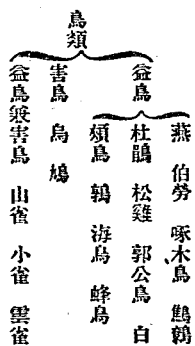 鳥類
益鳥
燕 伯勞 啄木鳥 鷦鷯
杜鵑 松雞 郭公鳥 白
頰鳥 鶉 海鳥 蜂鳥
害鳥 烏 鳩
益鳥兼害鳥 山雀 小雀 雲雀